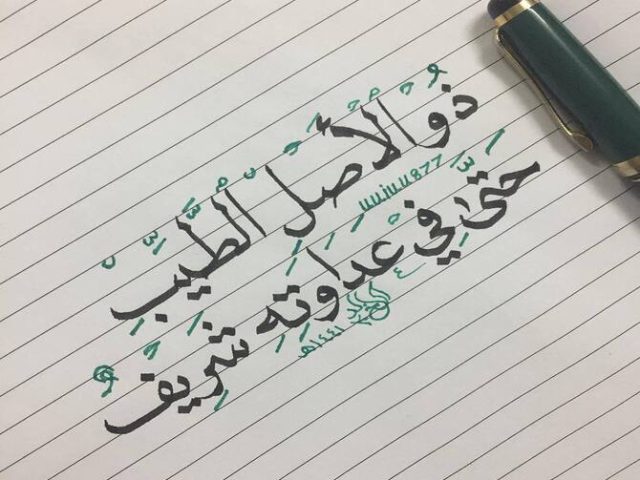 ذُو الْأَصْلِ الطَّيِّبِ
حَتَّى فِي عَدَاوَتِهِ شَرِيفٌ
١٤٤١هـ